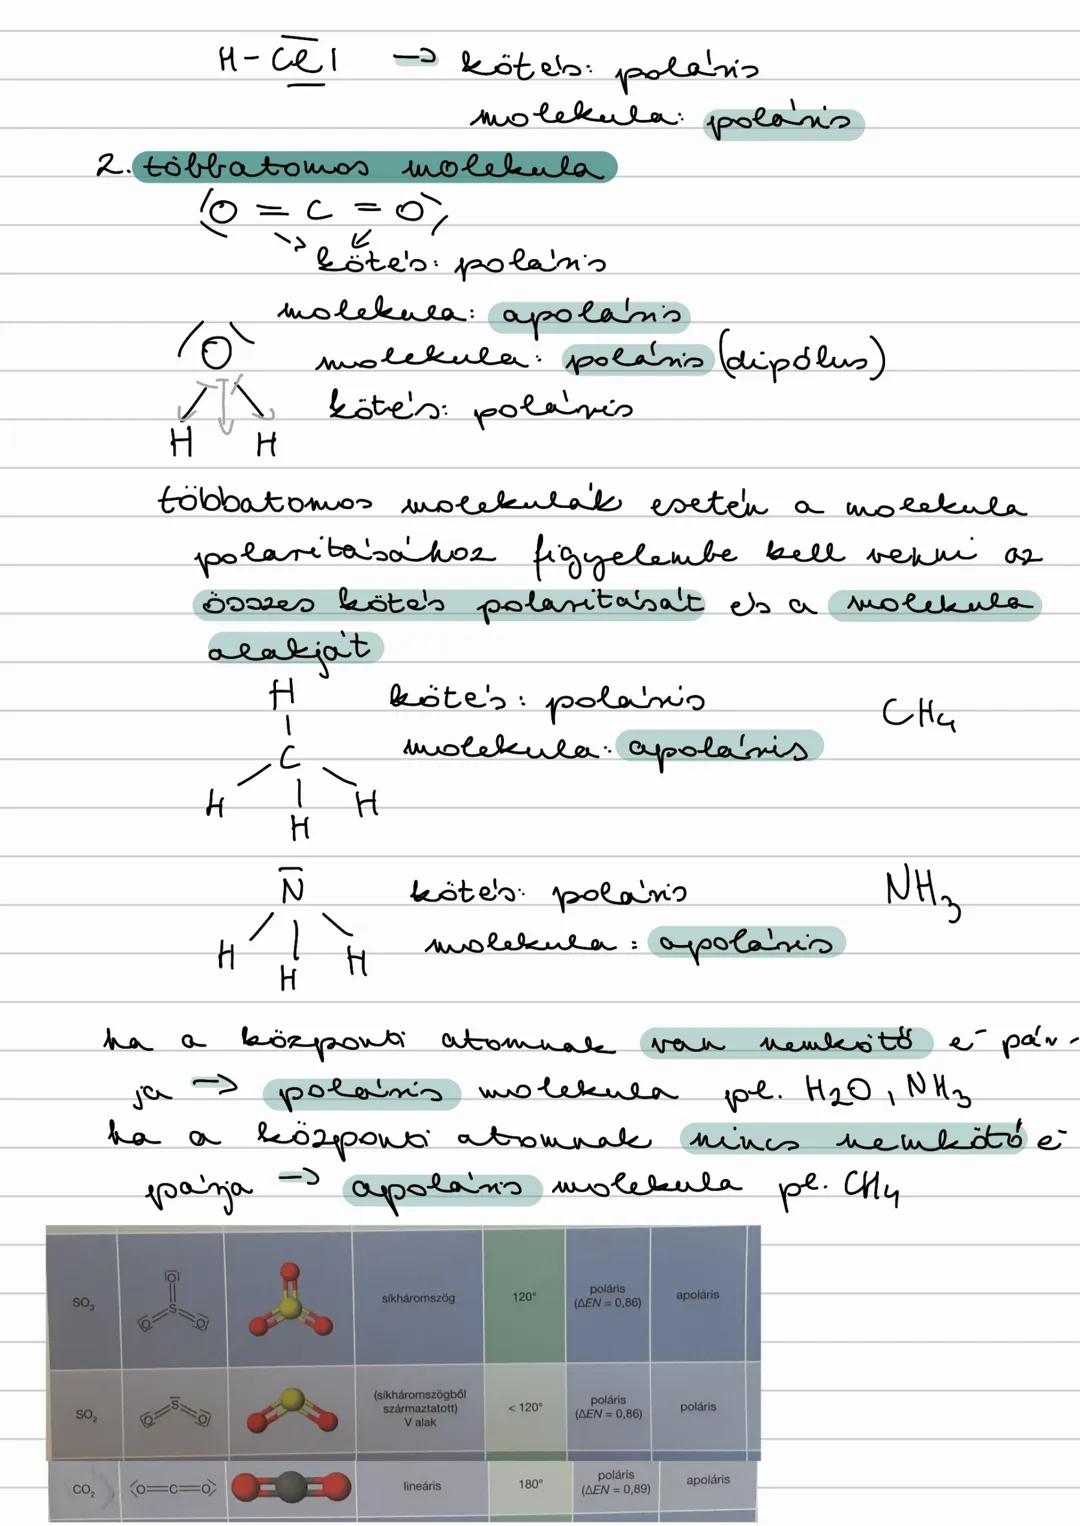 H-Cl| → kötés: poláris
molekula: poláris
2. többatomos molekula
O = C = O
kötés: poláris
molekula: apoláris
O molekula: poláris (dipólus)
kötés: poláris
H H
többatomos molekulák esetén a molekula
polaritásához figyelembe kell venni az
összes kötés polaritását és a molekula
alakját
H kötés: poláris CH4
C molekula: apoláris
H H
H
N kötés: poláris NH3
H H molekula: apoláris
H
ha a központi atomnak van nemkötő e⁻ pár-
ja → poláris molekula pl. H2O, NH3
ha a központi atomnak nincs nemkötő e⁻
párja → apoláris molekula pl. CH4
SO₃ O S O O síkháromszög 120° poláris (ΔEN = 0,86) apoláris
SO₂ S O O (síkháromszögből származtatott) V alak < 120° poláris (ΔEN = 0,86) poláris
CO₂ O=C=O lineáris 180° poláris (ΔEN = 0,89) apoláris